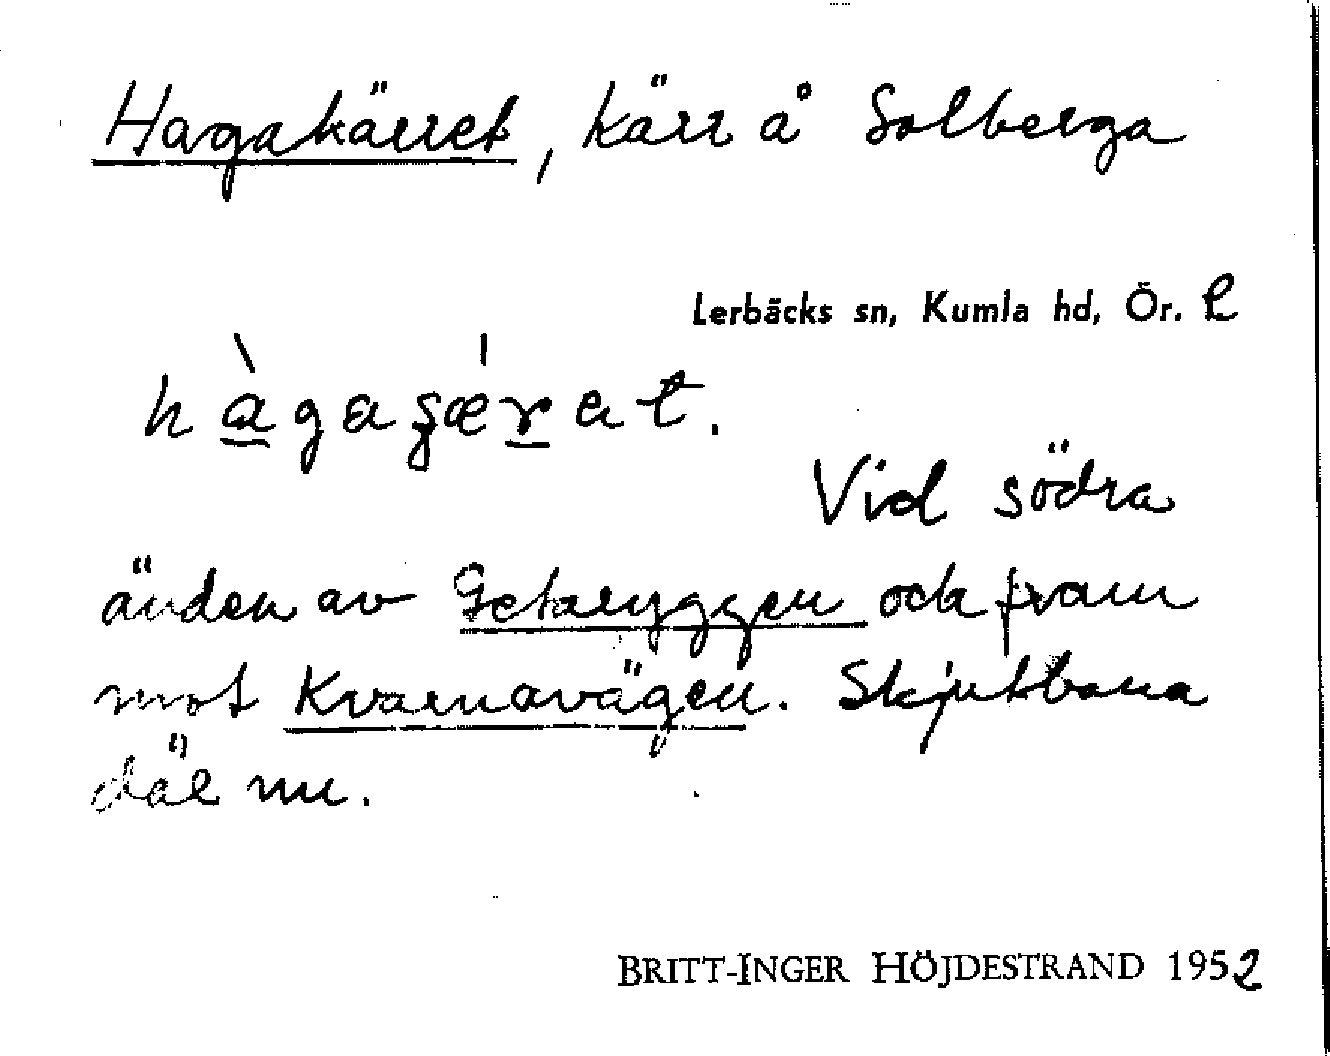 Hagakärret, kärr å Solberga
Lerbäcks sn, Kumla hd, Ör. l
hàgaʂǽrat.
Vid södra
änden av Getaryggen och fram
mot Kvarnavägen. Skjutbana
där nu.
BRITT-INGER HÖJDESTRAND 1952